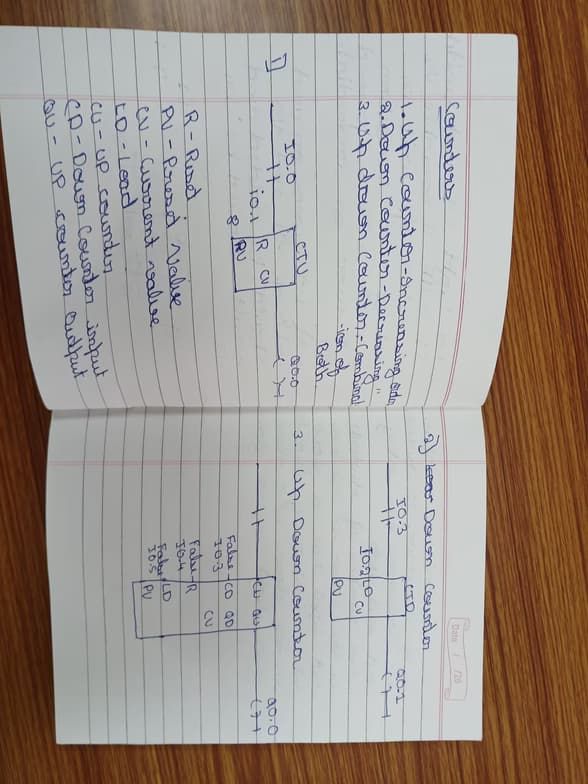 Counters
1. Up Counter - Increasing order
2. Down Counter - Decreasing "
3. Up down Counter - Combinat
-ion of
Both
1)
I0.0
CTU
Q0.0
i0.1
R
CV
8
PV
R - Reset
PV - Preset Value
CV - Current value
LD - Load
CU - UP counter
CD - Down Counter input
QU - UP counter output
Date / /20
2) Down Counter
I0.3
CTD
Q0.1
I0.2
LD
CV
PV
3. Up Down Counter
Q0.0
CU QU
False - CD QD
I0.3
CV
False - R
I0.4
False - LD
I0.5
PV